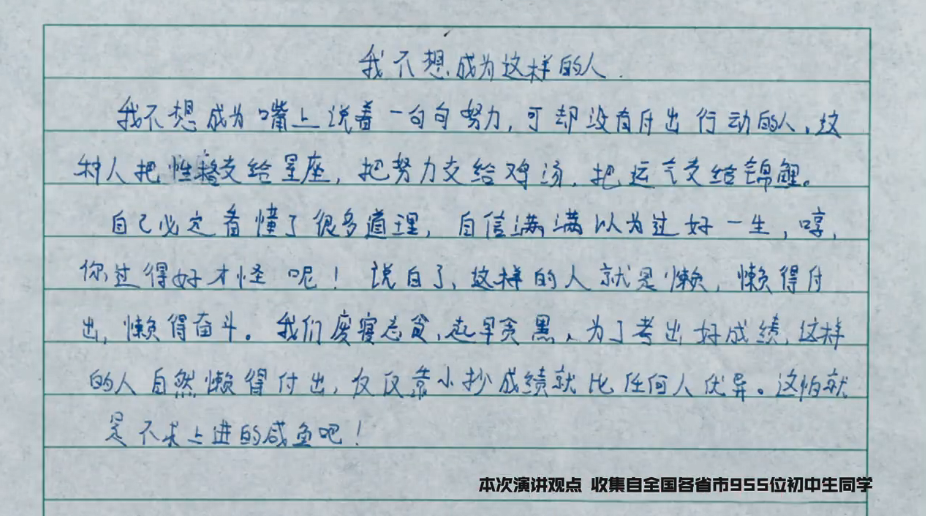 我不想成为这样的人
我不想成为嘴上说着一句句努力，可却没有付出行动的人，这
种人把性格交给星座，把努力交给鸡汤，把运气交给锦鲤。
自己必定看懂了很多道理，自信满满以为过好一生，哼，
你过得好才怪呢！说白了，这样的人就是懒，懒得付
出，懒得奋斗。我们废寝忘食，起早贪黑，为了考出好成绩，这样
的人自然懒得付出，仅仅靠小抄成绩就比任何人优异。这怕就
是不求上进的咸鱼吧！
本次演讲观点 收集自全国各省市955位初中生同学